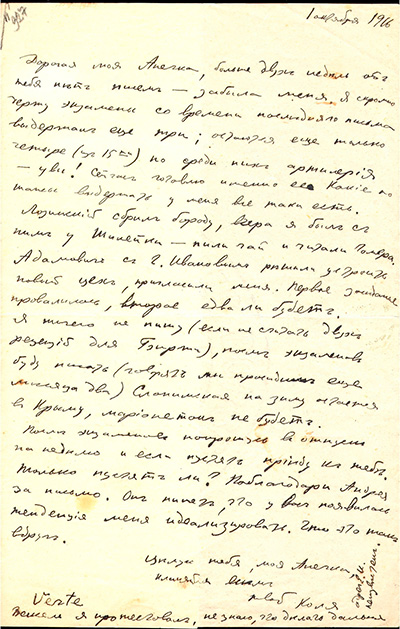 1 октября 1916
Дорогая моя Анечка, больше двух недель отъ
тебя нѣтъ писем — забыла меня. Я скромно
держу экзамены, со времени последняго письма
выдержал еще три; остаются еще только
четыре (из 15-ти) но среди них артиллерія
— увы! Сейчас готовлю именно ее. Какіе-то
шансы выдержать у меня все-таки есть.
Лозинскій сбрилъ бороду, вчера я был съ
нимъ у Шилейки — пили чай и читали Гомера.
Адамовичъ съ Г. Ивановымъ рѣшили устроить
новый цехъ, пригласили меня. Первое заседанiе
провалилось, второе едва ли будетъ.
Я ничего не пишу (если не считать двухъ
рецензiй для Биржи), послѣ экзаменовъ
буду писать (говорятъ, мы просидимъ еще
мѣсяца два). Слонимская на зиму остается
в Крыму, маріонетокъ не будетъ.
Послѣ экзаменовъ попрошусь в отпускъ
на неделю и если пустятъ приѣду къ тебѣ.
Только пустятъ ли? Поблагодари Андрея
за письмо. Онъ пишетъ, что у васъ появилась
тенденція меня идеализировать. Что это такъ
вдругъ.
Целую тебя, моя Анечка,
кланяйся всемъ
твой Коля
Verte